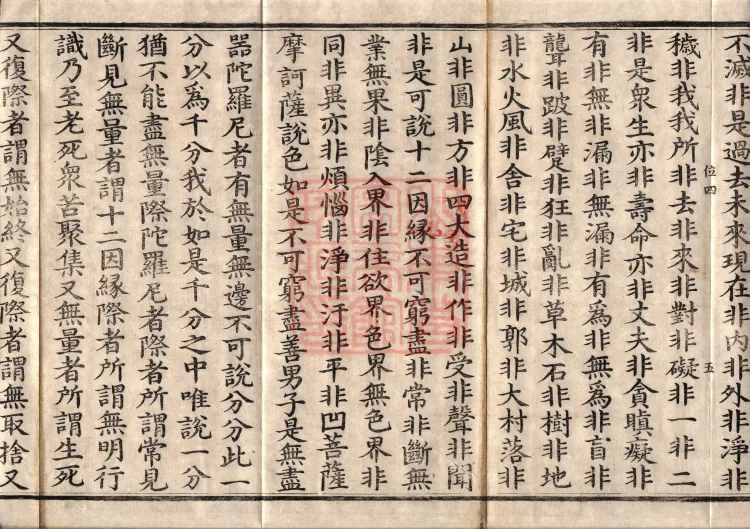 不滅非是過去未來現在非內非外非淨非
穢非我我所非去非來非對非礙非一非二
位四
五
非是衆生亦非壽命亦非丈夫非貪瞋癡非
有非無非漏非無漏非有爲非無爲非盲非
聾非跛非躄非狂非亂非草木石非樹非地
非水火風非舍非宅非城非郭非大村落非
山非圓非方非四大造非作非受非聲非聞
非是可說十二因緣不可窮盡非常非斷無
業無果非陰入界非住欲界色界無色界非
同非異亦非煩惱非淨非汙非平非凹菩薩
摩訶薩說色如是不可窮盡善男子是無盡
器陀羅尼者有無量無邊不可說分分此一
分以爲千分我於如是千分之中唯說一分
猶不能盡無量際陀羅尼者際者所謂常見
斷見無量者謂十二因緣際者所謂無明行
識乃至老死衆苦聚集又無量者所謂生死
又復際者謂無始終又復際者謂無取捨又